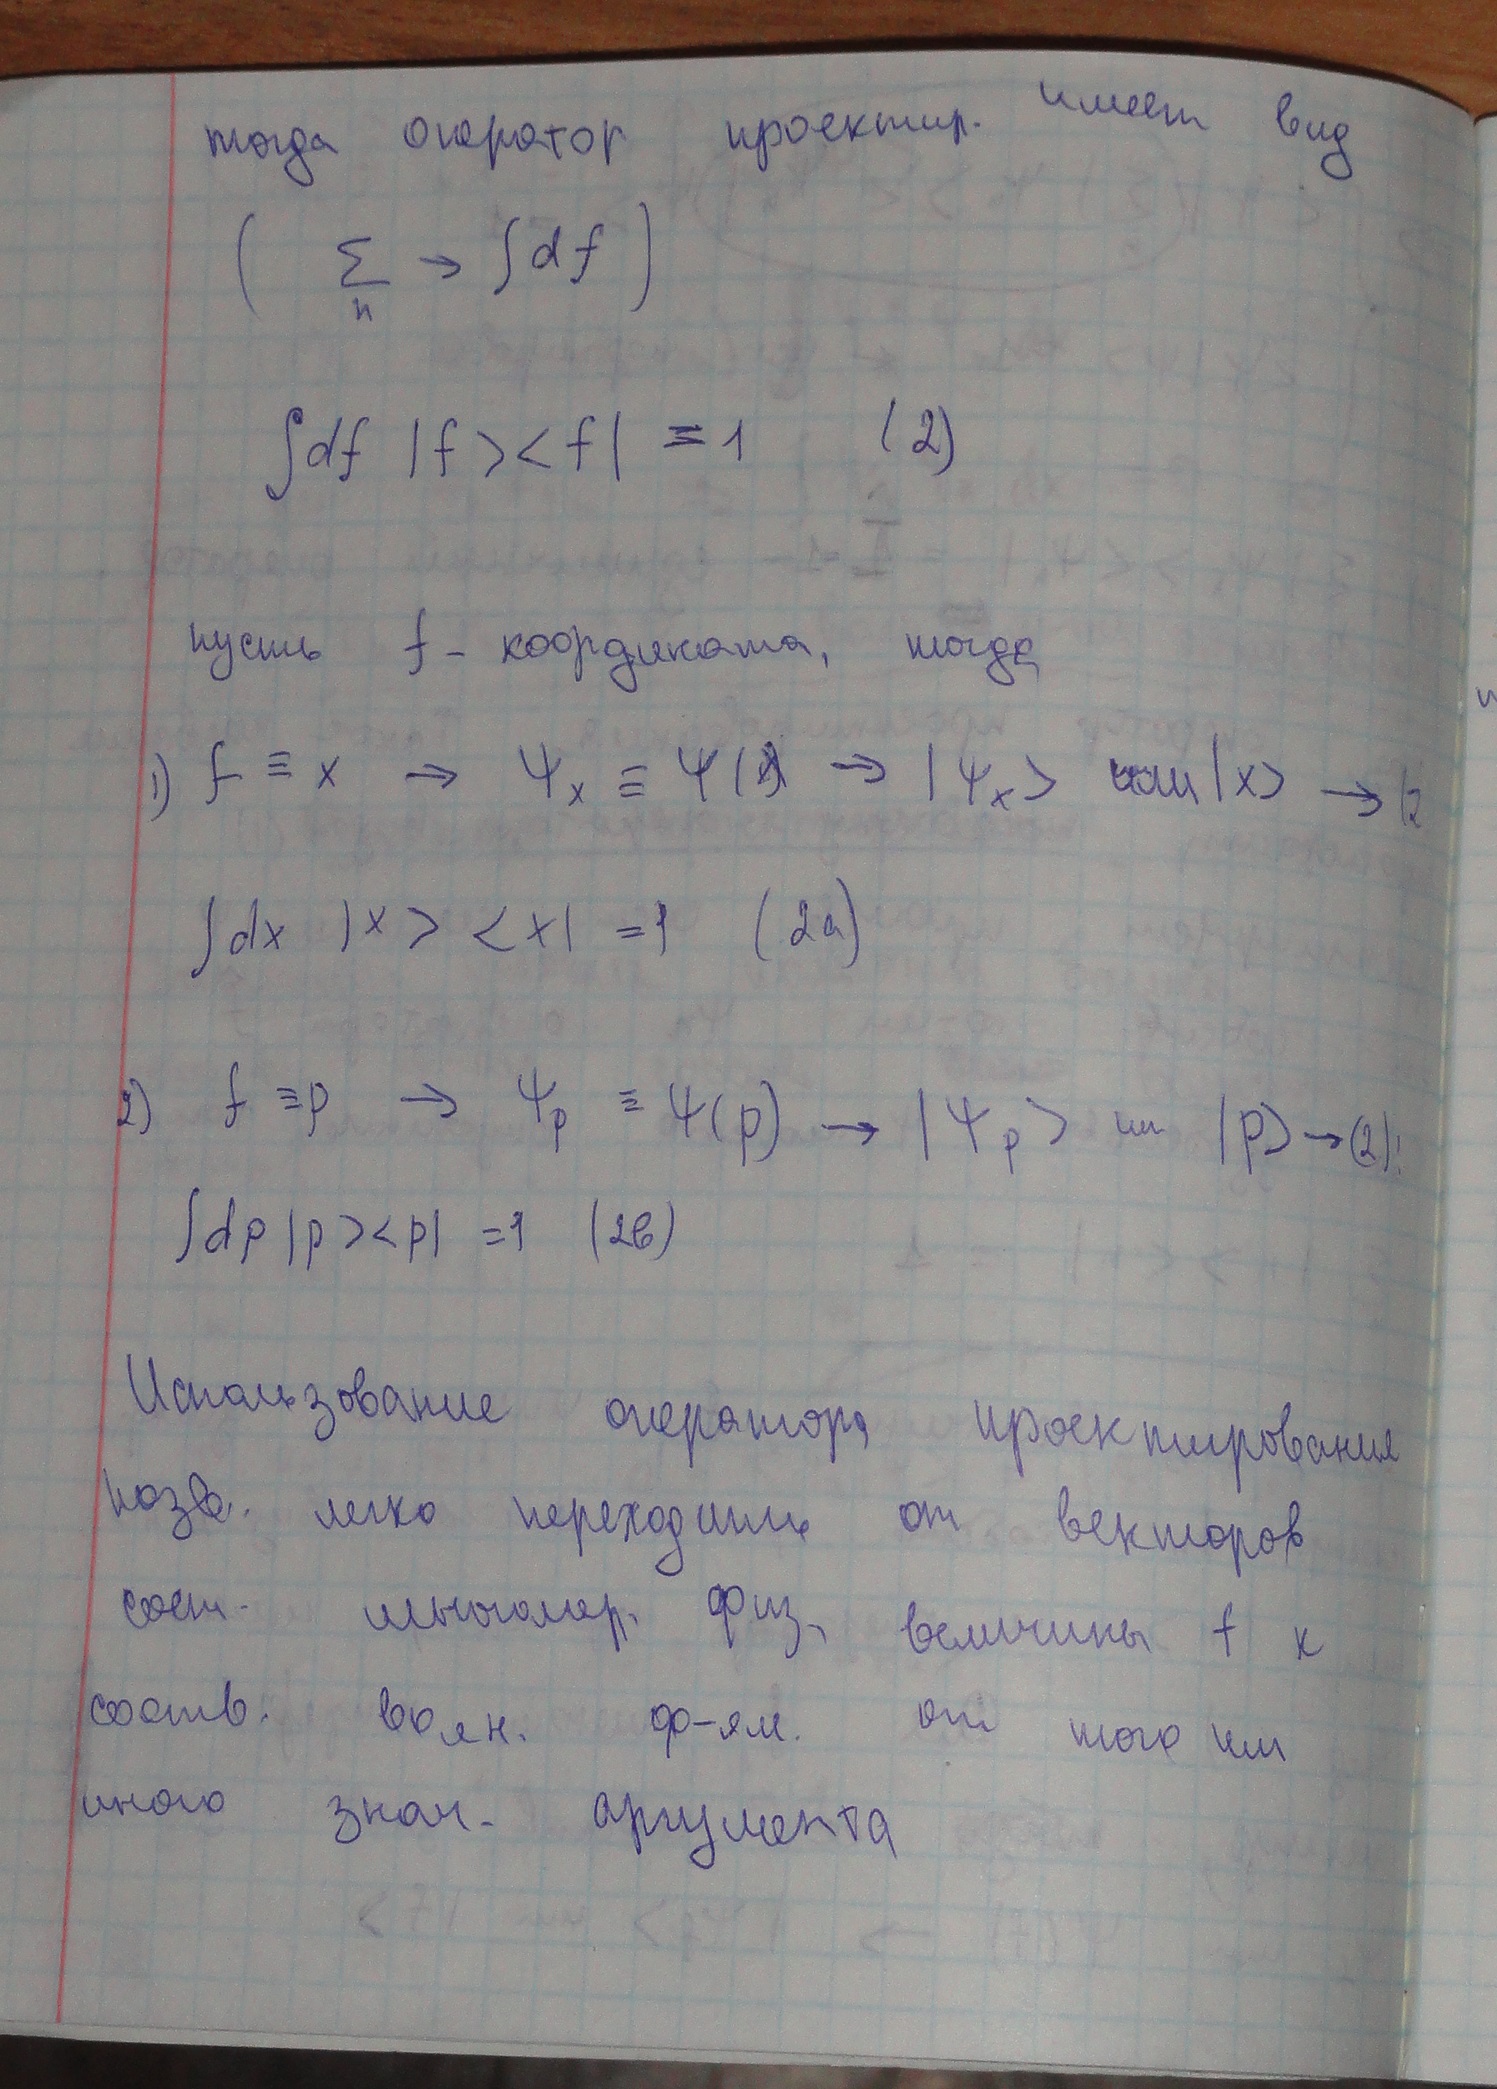 тогда оператор проектир. имеет вид
( Σ_n → ∫df )
∫df |f><f| = 1 (2)
пусть f - координата, тогда
1) f ≡ x → Ψ_x ≡ Ψ(x) → |Ψ_x> или |x> → (2
∫dx |x> <x| = 1 (2а)
2) f ≡ p → Ψ_p ≡ Ψ(p) → |Ψ_p> или |p> → (2):
∫dp |p><p| = 1 (2в)
Использование оператора проектирования
позв. легко переходить от векторов
сост. физ. величины f к
соотв. волн. ф-ям. от того или
иного знач. аргумента